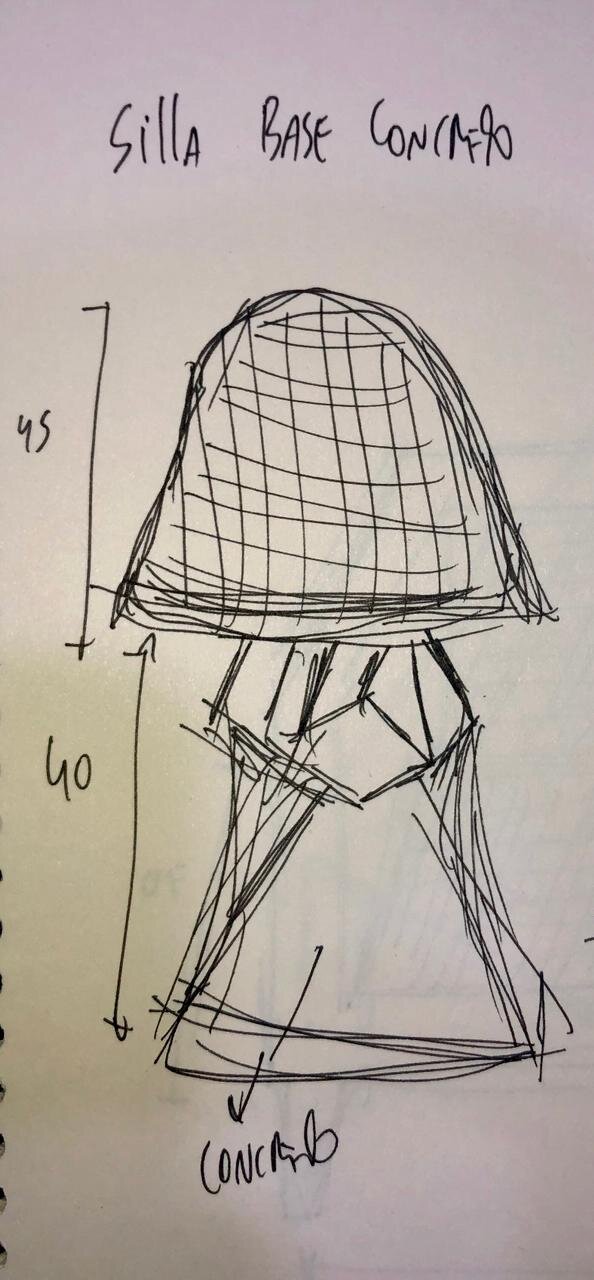 Silla BASE CONCRETO
45
40
CONCRETO